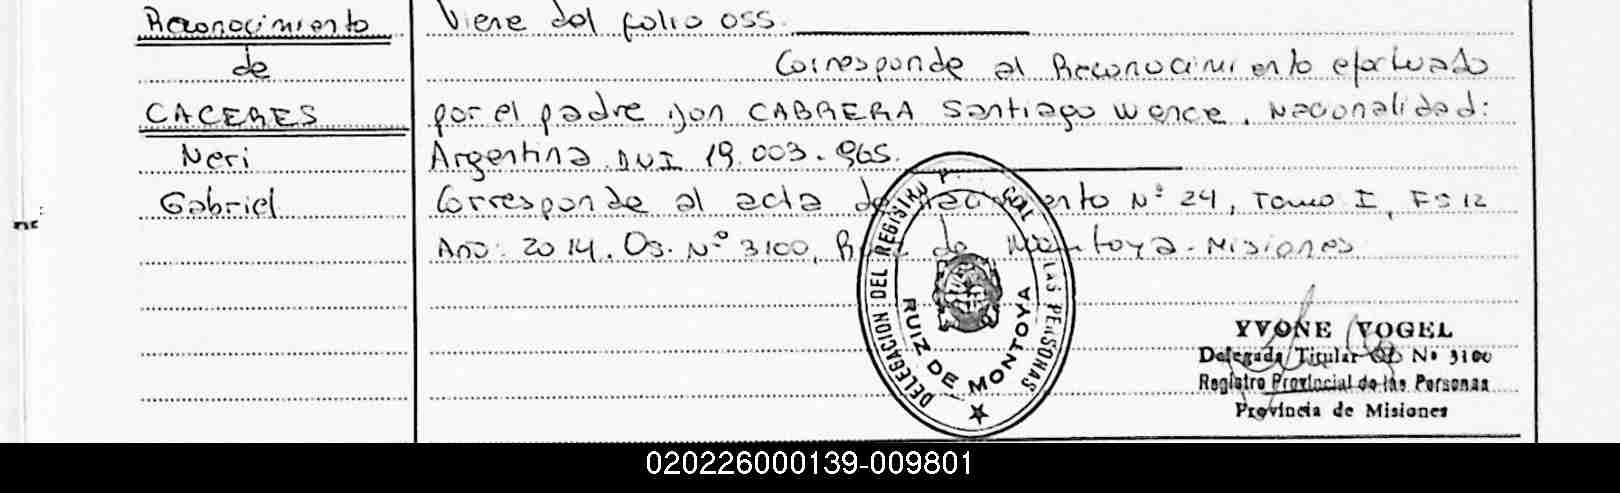 Reconocimiento
de
CACERES
Neri
Gabriel
Viene del folio 055.
Corresponde al Reconocimiento efectuado
por el padre don CABRERA Santiago Wence. Nacionalidad:
Argentina. DNI 19.003.965.
Corresponde al acta de Nacimiento Nº 24, Tomo I, FS 12
Año: 2014. Os. Nº 3100, Ruiz de Montoya - Misiones
DELEGACION DEL REGISTRO P... LAS PERSONAS
RUIZ DE MONTOYA
YVONE VOGEL
Delegada Titular Nº 3100
Registro Provincial de las Personas
Provincia de Misiones
020226000139-009801